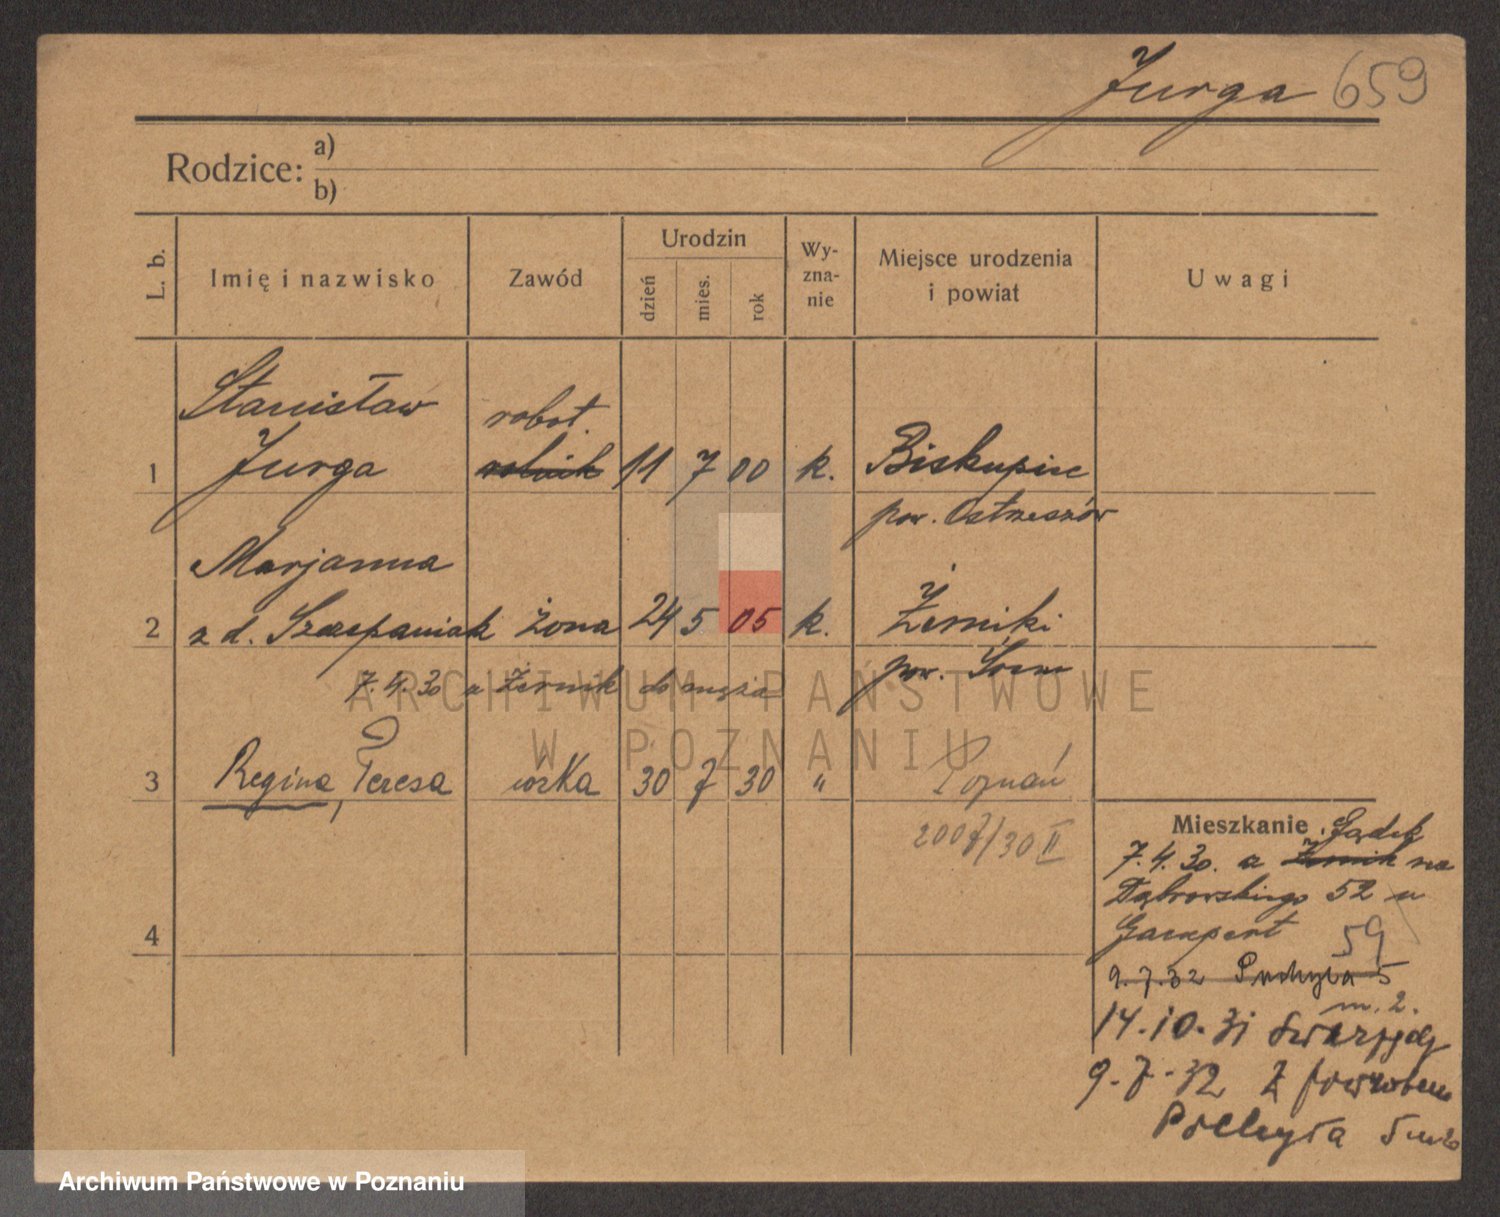 Jurga 659
Rodzice: a)
b)
L. b. Imię i nazwisko Zawód Urodzin dzień mies. rok Wy-zna-nie Miejsce urodzenia i powiat Uwagi
Stanisław robot.
1 Jurga rolnik 11 7 00 k. Biskupice
pow. Ostrzeszów
Marjanna
2 z d. Szczepaniak żona 24 5 05 k. Żerniki
pow. Śrem
7.4.30 z Żernik do męża
ARCHIWUM PAŃSTWOWE
W POZNANIU
3 Regina, Teresa córka 30 7 30 " Poznań
2007/30 II
4
Mieszkanie Gądek
7.4.30. z Żernik na
Dąbrowskiego 52 u
59
9.7.32 Pochyła 5
m. 2.
14.10.31 Swarzędz
9.7.32 z powrotem
Pochyła 5 m 2
Archiwum Państwowe w Poznaniu